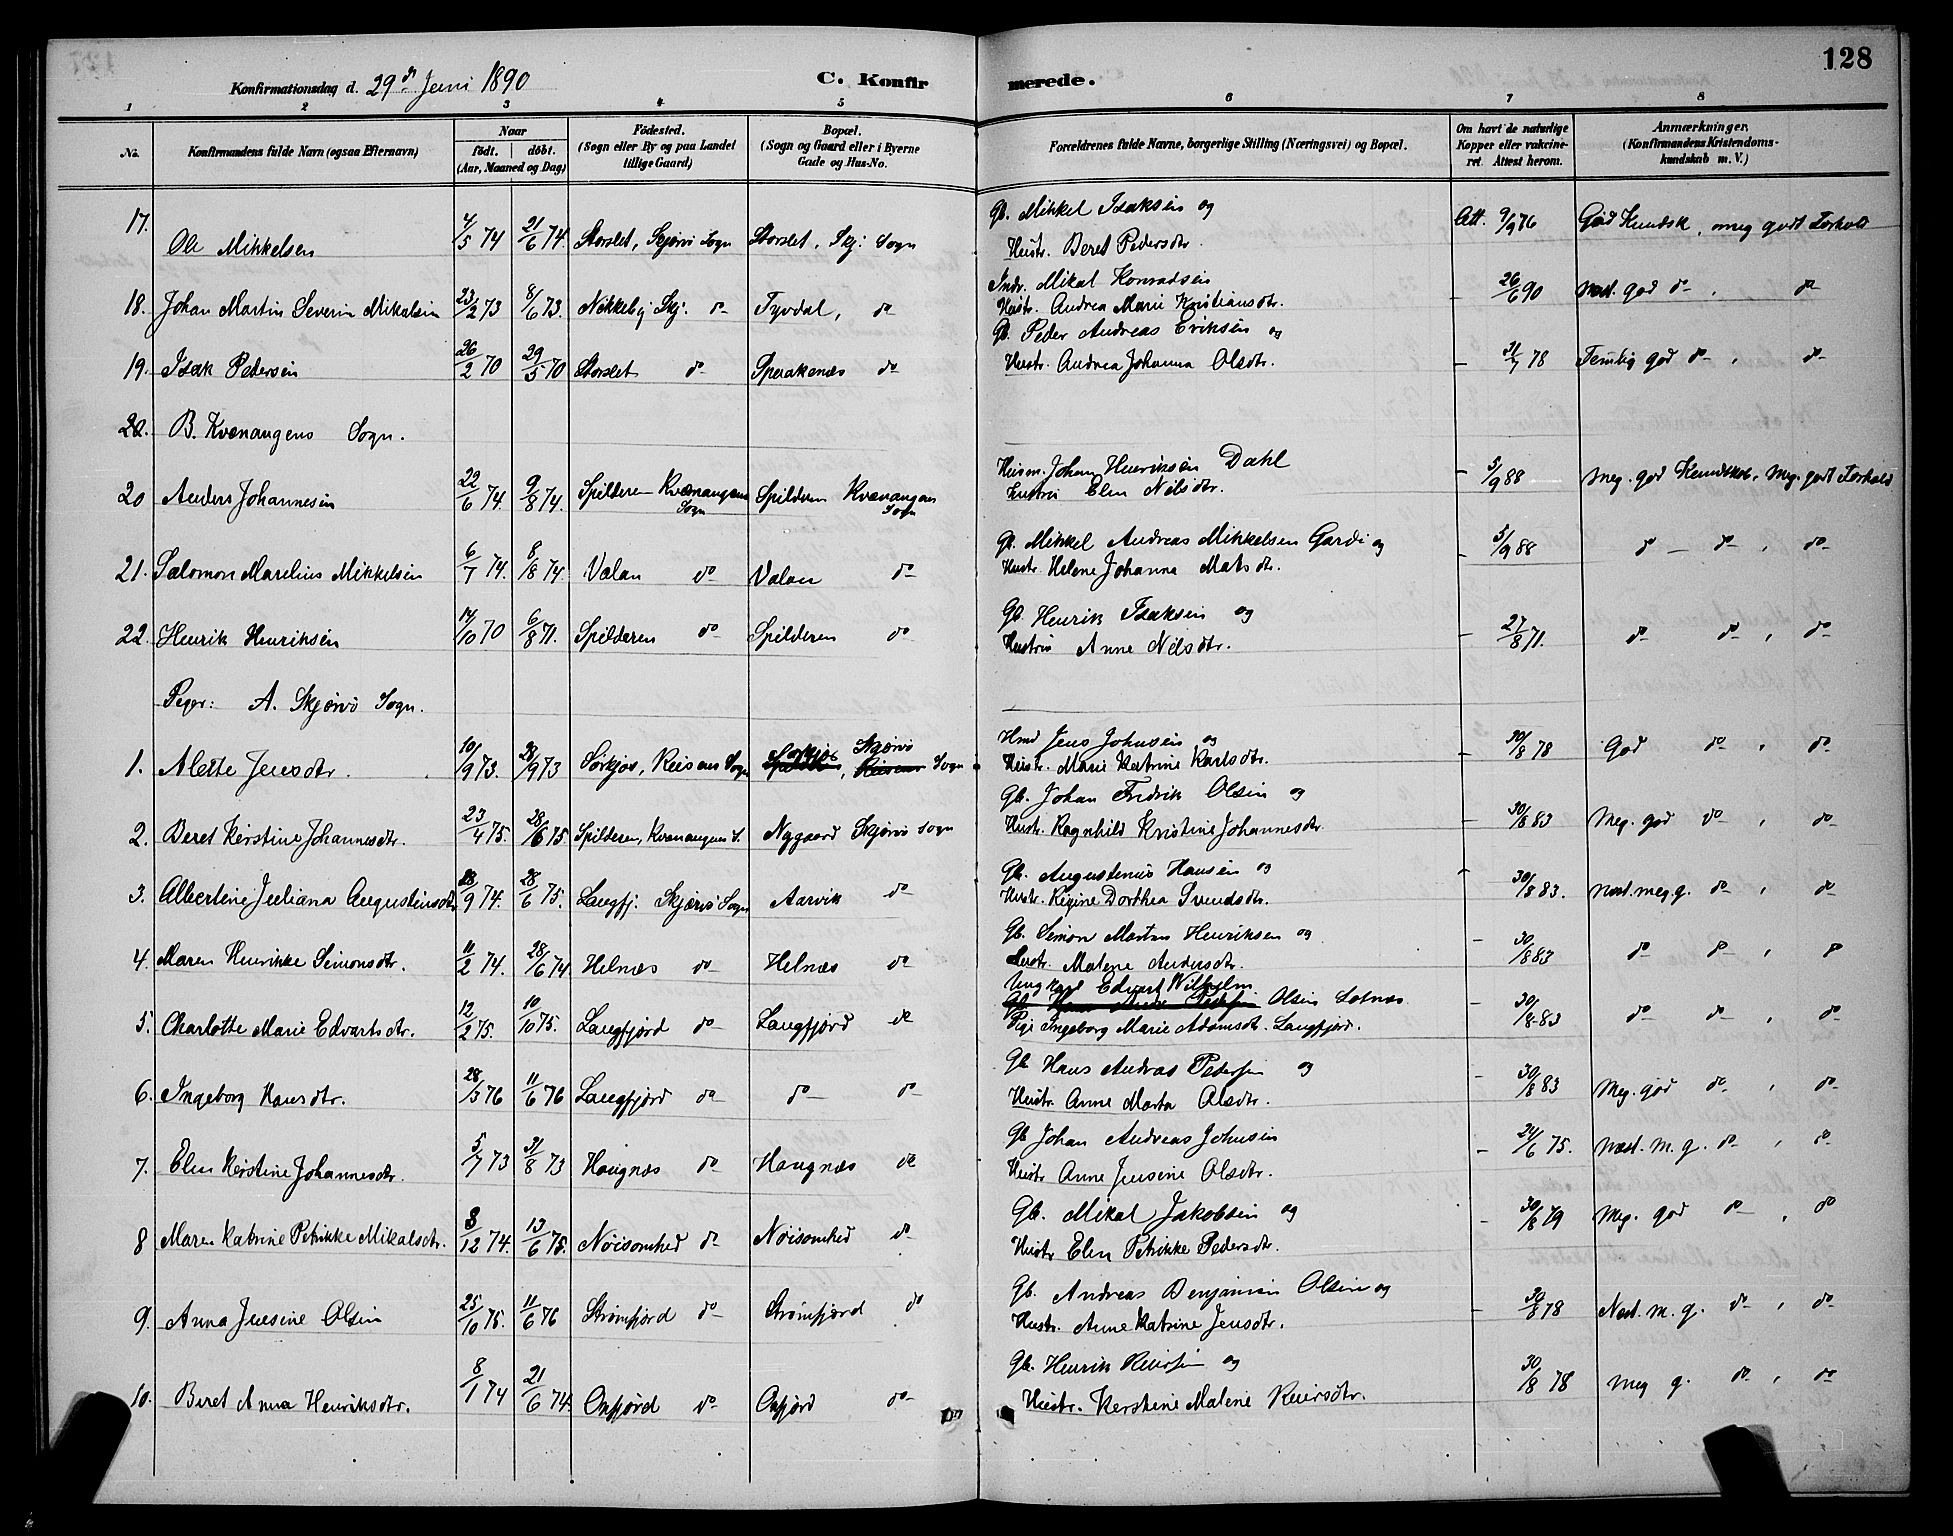 128
Konfirmationsdag d. 29de Juni 1890
C. Konfirmerede.
1 2 3 4 5 6 7 8
No.
Konfirmandens fulde Navn (ogsaa Efternavn)
Naar
födt. döbt.
(Aar, Maaned og Dag)
Födested.
(Sogn eller By og paa Landet
tillige Gaard)
Bopæl.
(Sogn og Gaard eller i Byerne
Gade og Hus-No.
Forældrenes fulde Navne, borgerlige Stilling (Næringsvei) og Bopæl.
Om havt de naturlige
Kopper eller vakcine-
ret. Attest herom.
Anmærkninger.
(Konfirmandens Kristendoms-
kundskab m. V.)
Gb. Mikkel Isaksen og
17. Ole Mikkelsen 4/5 74 21/6 74. Storslet, Skjervö Sogn Storslet, Skj: Sogn Hustr. Beret Pedersdtr. Att. 9/9 76 God Kundsk, meg godt Forhold
Indr. Mikal Konradsen
18. Johan Martin Severin Mikalsen 23/2 73 8/6 73. Nikkeby Skj: do Tyvdal, do Hustr. Andrea Marie Kristiansdtr. - 26/6 90 Næst. god do , do
Gb. Peder Andreas Eriksen og
19. Isak Pedersen 26/2 70 29/5 70 Storslet do Spraakenæs do Hustr. Andrea Johanna Olsdtr. - 31/7 78 Temlig god do , do
20. B. Kvænangens Sogn.
Husm. Johan Henriksen Dahl
20 Anders Johannesen 22/6 74. 9/8 74. Spilderen Kvænangens Sogn Spilderen Kvænangens Sogn Hustru Elen Nilsdtr. - 5/9 88 Meg. god Kundskab, Meg. godt Forhold
Gb. Mikkel Andreas Mikkelsen Gardi og
21. Salomon Marelius Mikkelsen 6/7 74. 8/18 74. Valan do Valan do Hustr. Helene Johanna Matsdtr. - 5/9 88 do - do , do
Gb. Henrik Isaksen og
22. Henrik Henriksen 14/10 70 6/8 71. Spilderen do Spilderen do Hustru Anne Nilsdtr. - 27/8 71. do do , do
Piger: A. Skjervö Sogn.
Hmd Jens Johnsen og
1. Alette Jensdtr. 10/9 73. 28/9 73 Sörkjos, Reisens Sogn Skjervö Sogn Hustr. Marie Katrine Karlsdtr. - 30/8 78 God do , do
Gb. Johan Fredrik Olsen og
2. Beret Kerstine Johannesdtr. 23/4 75. 28/6 75. Spilderen, Kvænangens S. Nygaard Skjervö Sogn Hustr. Ragnhild Kristine Johannesdtr. - 30/8 83 Meg. god do , do
Gb. Augustenius Hansen og
3. Albertine Juliana Augustinsdtr. 28/9 74. 28/6 75. Langfj. Skjervö Sogn Aarvik do Hustr. Regine Dorthea Trundsdtr. - 30/8 83. Næst. meg g. do , do
Gb. Simon Martin Henriksen og
4. Maren Henrikke Simonsdtr. 11/2 74. 28/6 74 Helnæs do Helnæs do Hustr. Malene Andersdtr. - 30/8 83 do do , do
Ungkarl Edvart Wilhelm Olsen Lotnæs
5. Charlotte Marie Edvartsdtr. 12/2 75. 10/10 75. Langfjord do Langfjord do Pige Ingeborg Marie Adamsdtr. Langfjord. - 30/8 83 do do , do
Gb Hans Andreas Pedersen og
6. Ingeborg Hansdtr. 28/3 76 11/6 76 Langfjord do do do Hustr. Anne Marta Olsdtr. - 30/8 83 Meg. god do , do
Gb Johan Andreas Johnsen
7. Elen Kerstine Johannesdtr. 5/7 73 31/8 73 Haugnæs do Haugnæs do Hustr Anne Jensine Olsdtr. - 24/6 75. Næst. m. g. do , do
Gb. Mikal Jakobsen og
8 Maren Katrine Petrikke Mikalsdtr. 8/12 74. 13/6 75. Nöisomhed do Nöisomhed do Hustr Elen Petrikke Pedersdtr. - 30/8 79 Meg. god do , do
Gb. Andreas Benjamin Olsen og
9. Anna Jensine Olsen 25/10 75. 11/6 76 Strömfjord do Strömfjord do Hustr. Anne Katrine Jensdtr. - 30/8 78 Næst. m. g. do , do
Gb. Henrik Reiersen og
10. Beret Anna Henriksdtr. 8/1 74 21/6 74. Oxfjord do Oxfjord do Hustr. Kerstine Malene Reiersdtr. 30/8 78 Meg g. do , do